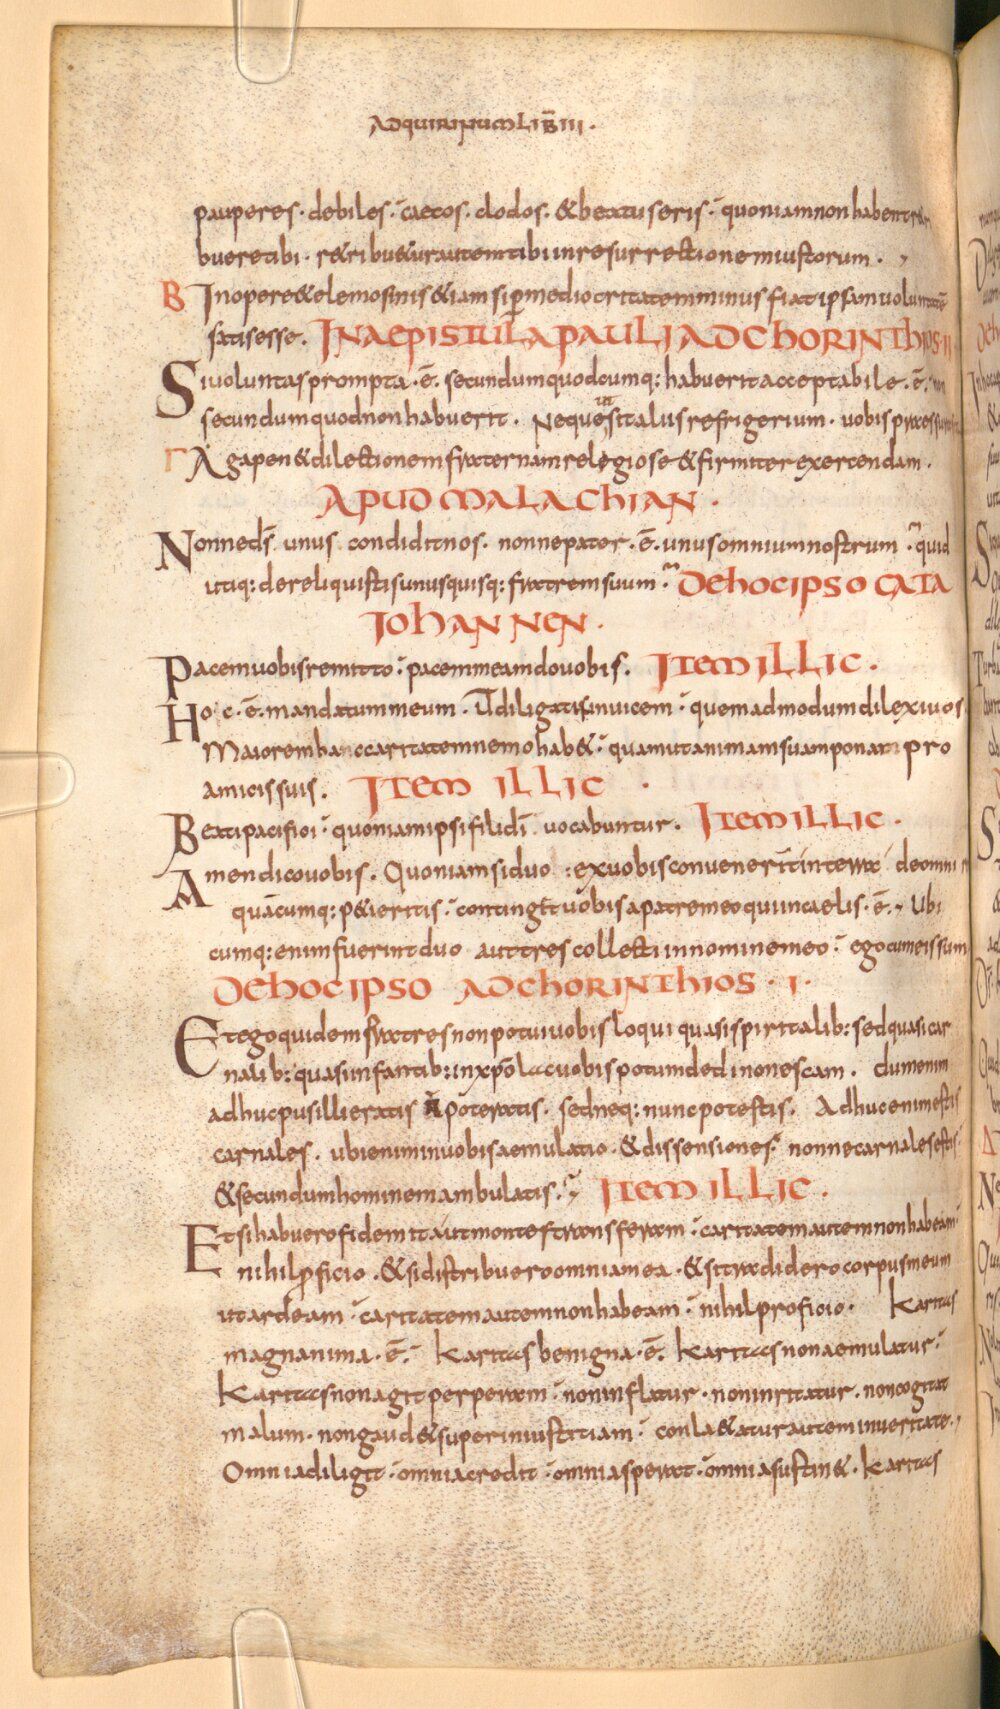 AD QUIRINUM LIB̄ III ·
pauperes · debiles · caecos · clodos · & beatus eris · quoniam non habent re
buere tibi · r&ribu&ur autem tibi in resurrectione miustorum ·
B In opere & elemosinis &iam si p mediocritatem minus fiat ipsam uoluntatē
satis esse · IN AEPISTULA PAULI AD CHORINTHIOS · II
Si uoluntas prompta · ē · secundum quodcumq: habuerit acceptabile · ē · non
secundum quod non habuerit · Neque ut sit aliis refrigerium · uobis pressura
Γ Agapen & dilectionem fraternam relegiose & firmiter exercendam ·
APUD MALACHIAN ·
Nonne d̄s unus condidit nos · nonne pater · ē · unus omnium nostrum · quid
utiq: dereliquistis unusquisq: fratrem suum · DE HOC IPSO CATA
IOHANNEN ·
Pacem uobis remitto · pacem meam do uobis · ITEM ILLIC ·
Hoc · ē · mandatum meum · ut diligatis inuicem · quemadmodum dilexi uos
Maiorem hanc caritatem nemo hab& · quam ut animam suam ponat pro
amicis suis · ITEM ILLIC ·
Beati pacifici · quoniam ipsi filii dī uocabuntur · ITEM ILLIC ·
Amen dico uobis · Quoniam si duo ex uobis conuenerint in terra de omni r
quācumq: p&ieritis · continget uobis a patre meo qui in caelis · ē · Ubi
cumq: enim fuerint duo aut tres collecti in nomine meo · ego cum eis sum
DE HOC IPSO AD CHORINTHIOS · I ·
Et ego quidem fratres non potui uobis loqui quasi spiritalib: sed quasi car
nalib: quasi infantib: in xp̄o lac uobis potum dedi non escam · dum enim
adhuc pusilli eratis n̄ poteratis · sed neq: nunc potestis · Adhuc enim estis
carnales · ubi enim in uobis aemulatio · & dissensiones · nonne carnales estis
& secundum hominem ambulatis · ITEM ILLIC ·
Et si habuero fidem ita ut montes transferam · caritatem autem non habeam
nihil p̄ficio · & si distribuero omnia mea · & si tradidero corpus meum
ut ardeam · caritatem autem non habeam · nihil proficio · Karitas
magnanima · ē · Karitas benigna · ē · Karitas non aemulatur ·
Karitas non agit perperam · non inflatur · non inritatur · non cogitat
malum · non gaud& super iniustitiam · conla&atur autem in ueritate ·
Omnia diligit · omnia credit · omnia sperat · omnia sustin& · Karitas